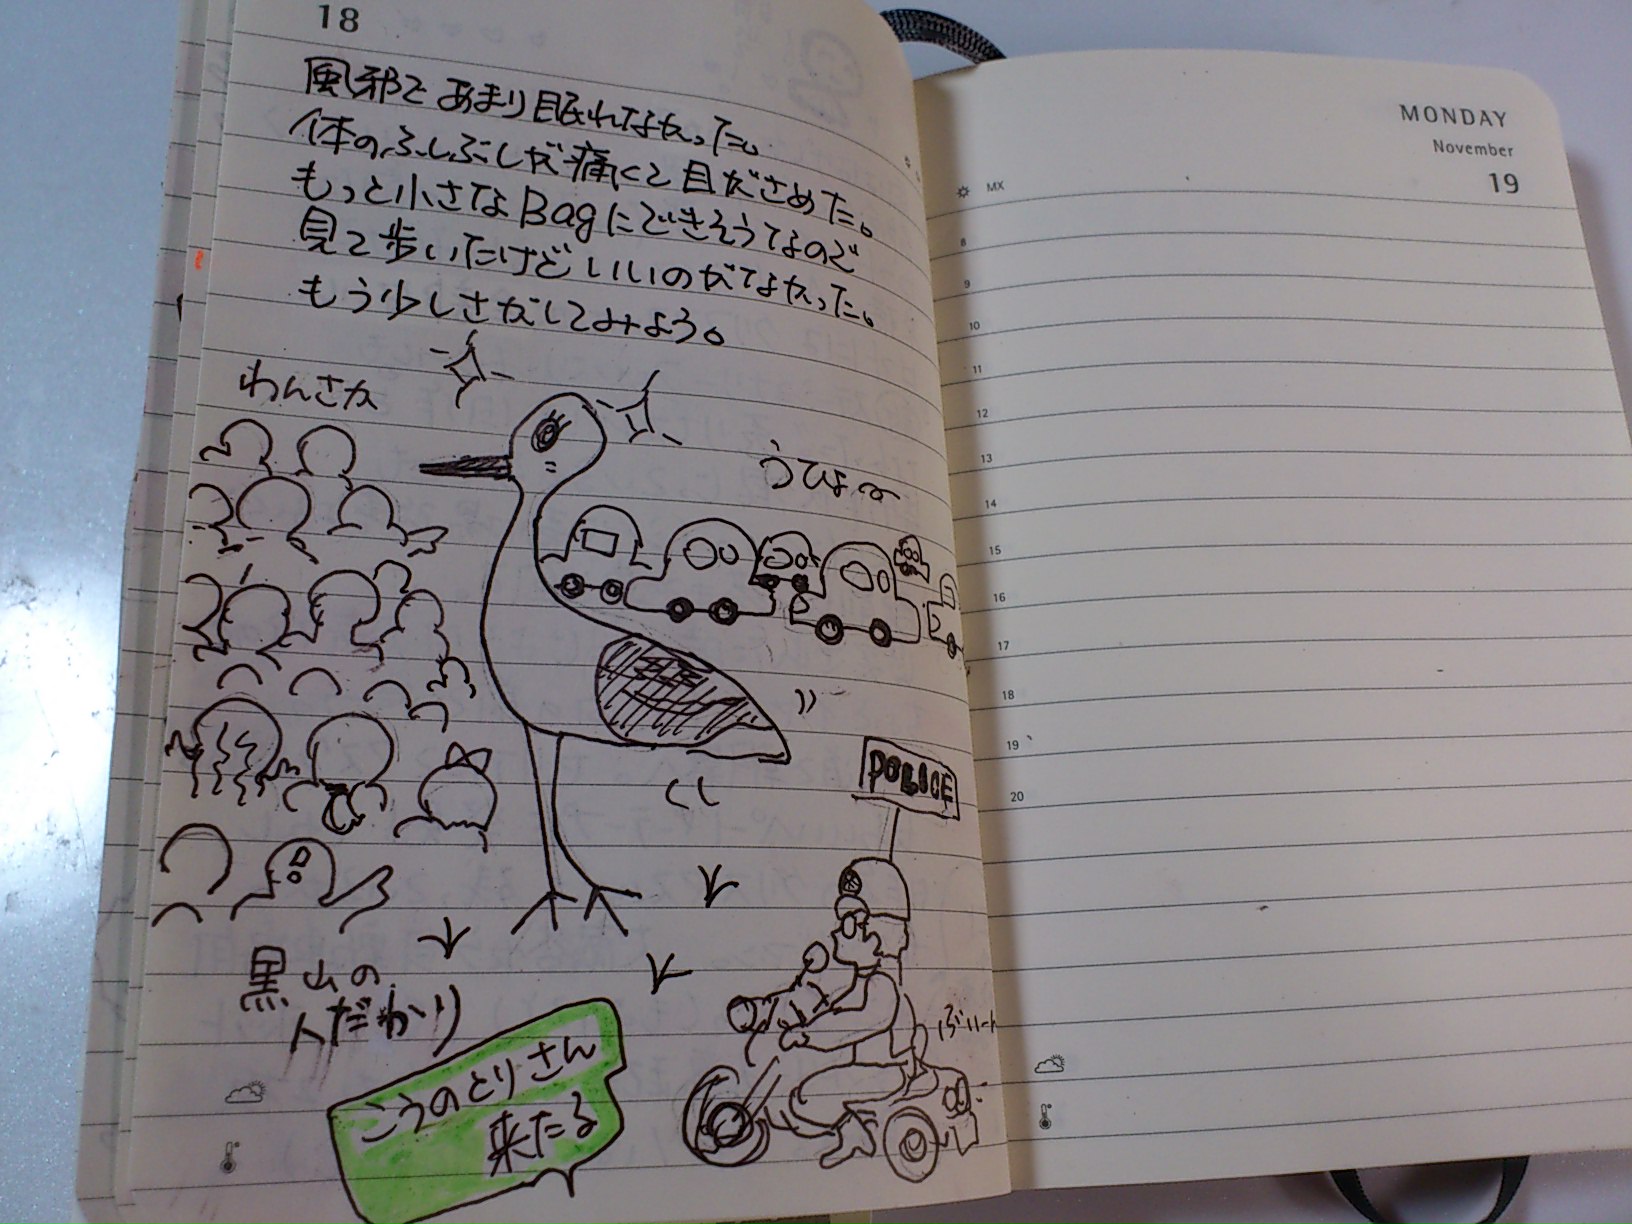 18
風邪であまり眠れなかった。
体のふしぶしが痛くて目がさめた。
もっと小さなBagにできそうなので
見て歩いたけどいいのがなかった。
もう少しさがしてみよう。
わんさか
うひょ〜
POLICE
黒山の
人だかり
ぶいーん
こうのとりさん
来たる
MONDAY
November
19
MX
8
9
10
11
12
13
14
15
16
17
18
19
20